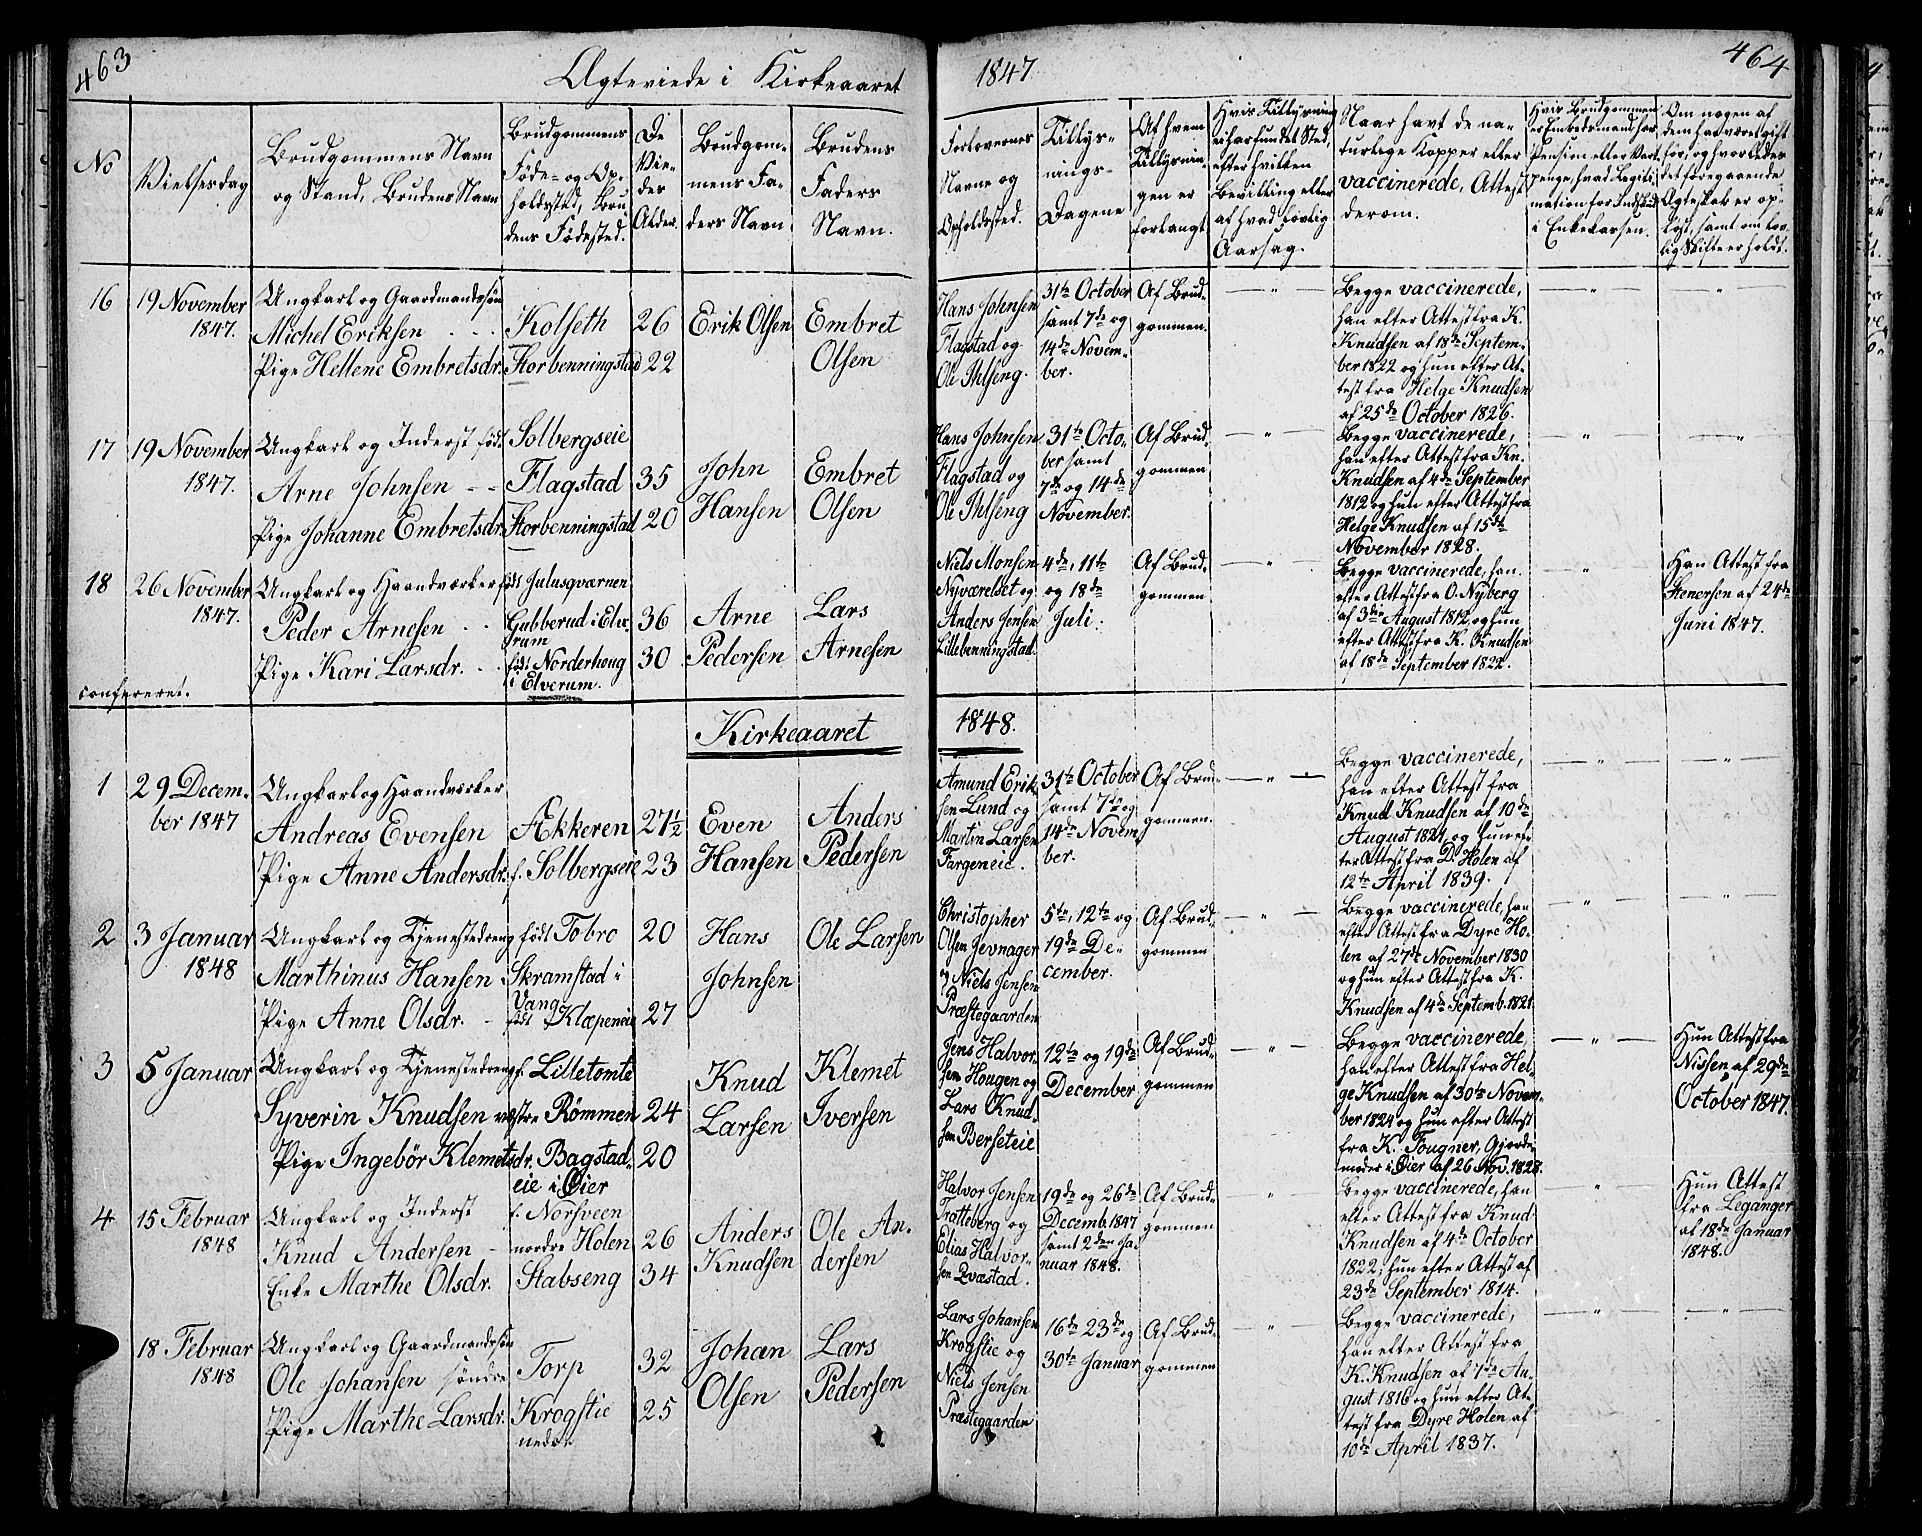 463
Ægteviede i Kirkeaaret
1847
464
No
Vielsesdag
Brudgommens Navn
og Stand, Brudens Navn
Brudgommens
Føde- og Op-
holdssted, Bru
dens Fødested.
De
Vie-
des
Alder.
Brudgom-
mens Fa-
ders Navn
Brudens
Faders
Navn.
Forlovernes
Navne og
Opholdssted.
Tillys-
nings-
Dagene
Af hvem
Tillysnin-
gen er
forlangt
Hvis Tillysning
ei har fundet Sted,
efter hvilken
Bevilling eller
af hvad lovlig
Aarsag.
Naar havt de na-
turlige Kopper eller
vaccinerede, Attest
derom.
Hvis Brudgommen
er Embedsmand har
Pension eller Vart-
penge, hvad Legiti
mation for Indskud
i Enkekassen.
Om nogen af
dem har været gift
før, og hvorledes
det foregaaende
Ægteskab er op-
løst, samt om lov-
lig Skifte er holdt.
16
19 November
1847.
Ungkarl og Gaardmandssøn
Michel Eriksen
Pige Hellene Embretsdr.
Kolseth
Storbenningstad
26
22
Erik Olsen
Embret
Olsen
Hans Johnsen
Flagstad og
Ole Ihlseng.
31te October
samt 7de og
14de Novem-
ber.
Af Brud-
gommen.
Begge vaccinerede,
han efter Attest fra K.
Knudsen af 18de Septem-
ber 1822 og hun efter At-
test fra Helge Knudsen
af 25de October 1826.
17
19 November
1847.
Ungkarl og Inderst født
Arne Johnsen
Pige Johanne Embretsdr.
Solbergseie
Flagstad
Storbenningstad
35
20
John
Hansen
Embret
Olsen
Hans Johnsen
Flagstad og
Ole Ihlseng
31te Octo-
ber samt
7de og 14de
November.
Af Brud-
gommen
Begge vaccinerede,
han efter Attest fra Kn.
Knudsen af 4de September
1812 og hun efter Attest fra
Helge Knudsen af 15de
November 1828.
18
26 November
1847.
Ungkarl og Haandværker
Peder Arnesen
Pige Kari Larsdr.
født Julusqværnen
Gubberud i Elve
rum
født Norderhoug
i Elverum.
36
30
Arne
Pedersen
Lars
Arnesen
Niels Monsen
Nyværelset og
Anders Jensen
Lillebenningstad.
4de, 11te
og 18de
Juli.
Af Brud-
gommen
Begge vaccinerede, han
efter Attest fra O. Nyberg
af 3die August 1812 og hun
efter Attest fra K. Knudsen
af 18de September 1822.
Han Attest fra
Stenersen af 24de
Juni 1847.
confereret.
Kirkeaaret
1848.
1
29 Decem-
ber 1847
Ungkarl og Haandværker
Andreas Evensen
Pige Anne Andersdr.
Ækkeren
f. Solbergseie
27½
23
Even
Hansen
Anders
Pedersen
Amund Erik
sen Lund og
Martin Larsen
Fargeneie.
31te October
samt 7de og
14de Novem
ber.
Af Brud-
gommen.
Begge vaccinerede,
han efter Attest fra
Knud Knudsen af 10de
August 1821, og hun ef-
ter Attest fra D. Holen af
12te April 1839.
2
3 Januar
1848
Ungkarl og Tjenestedreng
Marthinus Hansen
Pige Anne Olsdr.
født Tobro
Skramstad i
Vang
født Klæpeneie
20
27
Hans
Johnsen
Ole Larsen
Christopher
Olsen Jevnager
og Niels Jensen
Præstegaarden
5te, 12te og
19de De-
cember.
Af Brud-
gommen
Begge vaccinerede, han
efter Attest fra Dyre Ho-
len af 27de November 1830
og hun efter Attest fra K.
Knudsen af 4de Septemb. 1821.
3
5 Januar
Ungkarl og Tjenestedreng
Syverin Knudsen
Pige Ingebör Klemetsdr.
f. Lilletomte
vestre Römmen
Bagstad-
eie i Öier
24
20
Knud
Larsen
Klemet
Iversen
Jens Halvor-
sen Hougen og
Lars Knud-
sen Berseteie
12te og 19de
December
Af Brud-
gommen
Begge vaccinerede,
han efter Attest fra Hel-
ge Knudsen af 30te Novem-
ber 1824 og hun efter Attest
fra K. Fougner, Gjorde
moder i Öier af 26 Nov. 1828.
Hun Attest fra
Nissen af 29de
October 1847.
4
15 Februar
1848
Ungkarl og Inderst
Knud Andersen
Enke Marthe Olsdr.
f. Norsveen
nordre Holen
Stabseng
26
34
Anders
Knudsen
Ole An-
dersen
Halvor Jensen
Tratteberg og
Elias Halvor-
sen Qvæstad.
19de og 26de
Decemb. 1847
samt 2den Ja-
nuar 1848.
Af Brud-
gommen
Begge vaccinerede, han
efter Attest fra Knud
Knudsen af 4de October
1822; hun efter Attest af
23de September 1814.
Hun Attest
fra Leganger
af 18de Januar
1848.
18 Februar
1848
Ungkarl og Gaardmandssøn
Ole Johansen
Pige Marthe Larsdr.
søndre Torp
Krogstie
nedre
32
25
Johan
Olsen
Lars
Pedersen
Lars Johansen
Krogstie og
Niels Jensen
Præstegaarden
16de 23de og
30te Januar
Af Brud-
gommen
Begge vaccinerede,
han efter Attest fra
K. Knudsen af 7de Au-
gust 1816 og hun efter At-
test fra Dyre Holen af
10de April 1837.